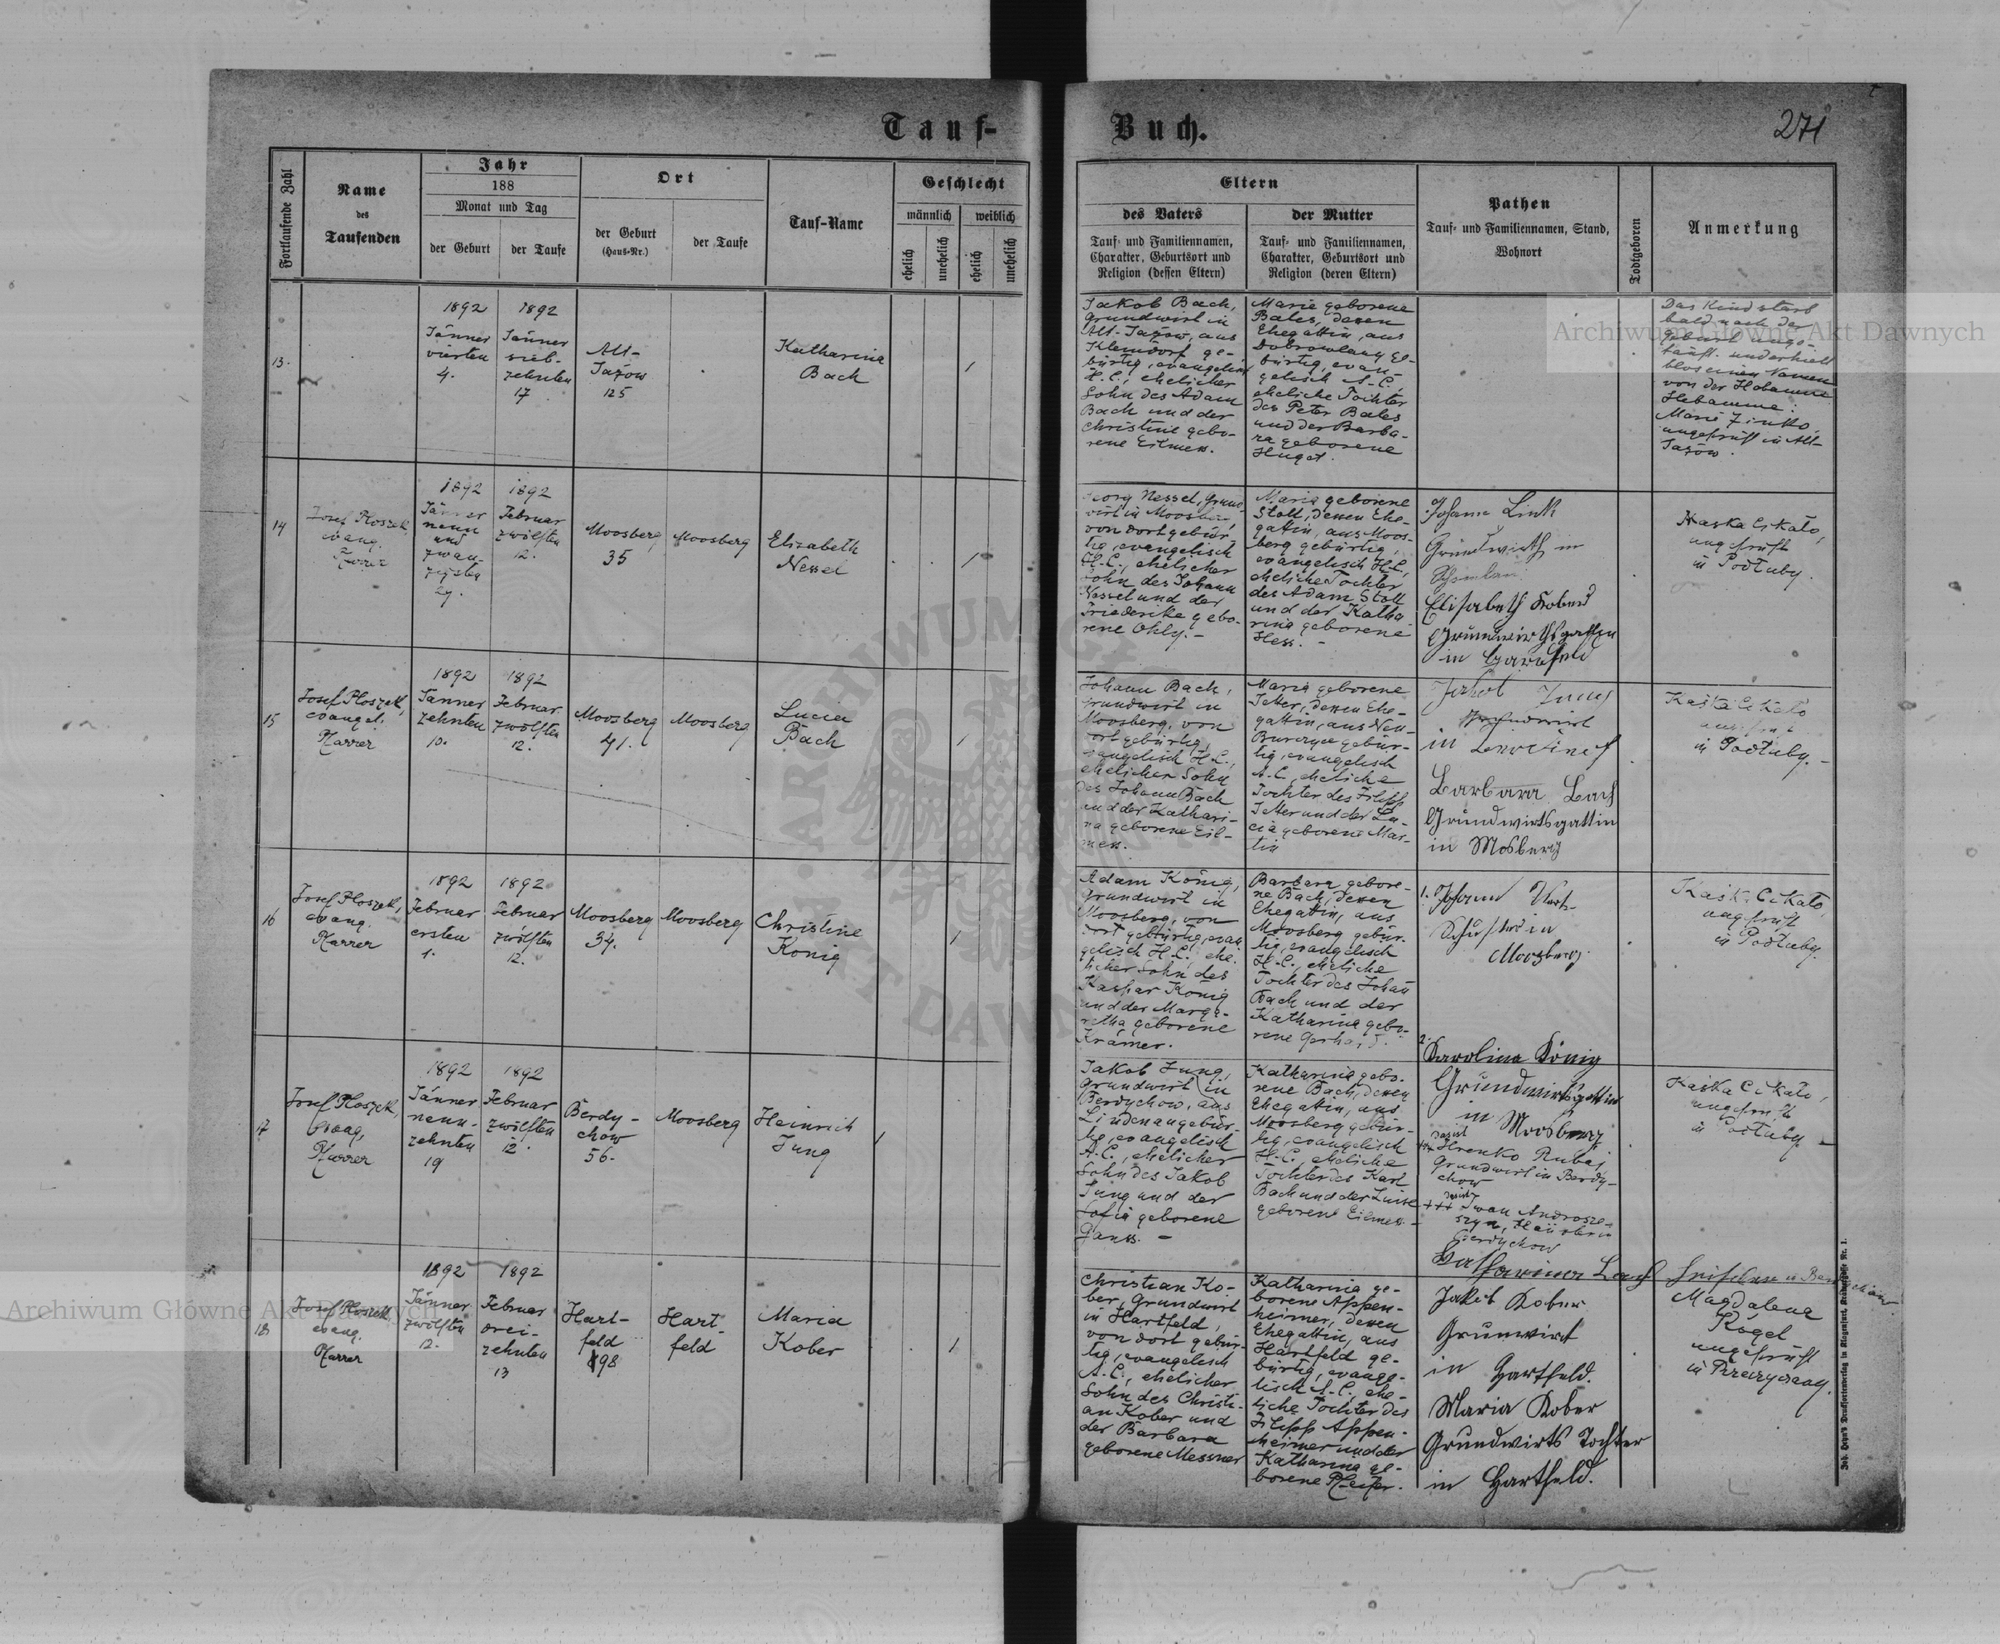 Tauf-
Buch.
271
Fortlaufende Zahl
Name
des
Taufenden
Jahr
188
Monat und Tag
der Geburt
der Taufe
Ort
der Geburt
(Haus-Nr.)
der Taufe
Tauf-Name
Geschlecht
männlich
weiblich
ehelich
unehelich
ehelich
unehelich
Eltern
des Vaters
Tauf- und Familiennamen,
Charakter, Geburtsort und
Religion (dessen Eltern)
der Mutter
Tauf- und Familiennamen,
Charakter, Geburtsort und
Religion (deren Eltern)
Pathen
Tauf- und Familiennamen, Stand,
Wohnort
Todtgeboren
Anmerkung
13.
1892
Jänner
vierten
4.
1892
Jänner
sieb-
zehnten
17
Alt-
Jazow
125
Katharina
Bach
1
Jakob Bach,
Grundwirt in
Alt-Jazow, aus
Kleindorf ge-
bürtig, evangelisch
H.C., ehelicher
Sohn des Adam
Bach und der
Christine gebo-
rene Eilmess.
Marie geborene
Bales, dessen
Ehegattin, aus
ge-
bürtig, evan-
gelisch A.C.,
eheliche Tochter
des Peter Bales
und der Barba-
ra geborene
Huget.
Das Kind starb
bald nach der
Geburt unge-
tauft und erhielt
blos einen Namen
von der Hebamme
Hebamme:
Marie
ungeprüft in Alt-
Jazow.
14
Josef Ploszek
evang.
Pfarrer
1892
Jänner
neun
und
zwan-
zigsten
29.
1892
Februar
zwölften
12.
Moosberg
35
Moosberg
Elizabeth
Nessel
1
Georg Nessel, Grund-
wirt in Moosberg,
von dort gebür-
tig, evangelisch
H.C., ehelicher
Sohn des Johann
Nessel und der
Friederike gebo-
rene Ohly. -
Maria geborene
Stoll, dessen Ehe-
gattin, aus Moos-
berg gebürtig,
evangelisch H.C.,
eheliche Tochter
des Adam Stoll
und der Katha-
rina geborene
Hess. -
Johann Link
Grundwirth in
Elisabeth Kober
Grundwirthsgattin
in Hartfeld
Kaska Cikało,
ungeprüft
in Podłuby.
15
Josef Ploszek,
evangel.
Pfarrer
1892
Jänner
zehnten
10.
1892
Februar
zwölften
12.
Moosberg
41.
Moosberg
Lucia
Bach
1
Johann Bach,
Grundwirt in
Moosberg, von
dort gebürtig,
evangelisch H.C.,
ehelicher Sohn
des Johann Bach
und der Kathari-
na geborene Eil-
mess.
Maria geborene
Jetter, dessen Ehe-
gattin, aus Neu-
gebür-
tig, evangelisch
A.C., eheliche
Tochter des Filipp
Jetter und der Lu-
cia geborene Mar-
tin
Jakob Jung
Grundwirt
in
Barbara Bach
Grundwirtsgattin
in Mosberg
Kaśka Cikało
ungeprüft
in Podłuby. -
16
Josef Ploszek,
evang.
Pfarrer
1892
Februar
ersten
1.
1892
Februar
zwölften
12.
Moosberg
34.
Moosberg
Christine
König
1
Adam König,
Grundwirt in
Moosberg, von
dort gebürtig, evan-
gelisch H.C., ehe-
licher Sohn des
Kaspar König
und der Marga-
retha geborene
Krämer.
Barbara gebore-
ne Bach, dessen
Ehegattin, aus
Moosberg gebür-
tig, evangelisch
H.C., eheliche
Tochter des Johan
Bach und der
Katharina gebo-
rene Gerhard.
1. Johann
Schuster in
Moosberg.
2.
Karolina König
Grundwirtsgattin
in Moosberg
Kaśka Cikało,
ungeprüft
in Podłuby.
17
Josef Ploszek,
evang.
Pfarrer
1892
Jänner
neun-
zehnten
19
1892
Februar
zwölften
12.
Berdy-
chow
56.
Moosberg
Heinrich
Jung
1
Jakob Jung,
Grundwirt in
Berdychow, aus
Lindenau gebür-
tig, evangelisch
A.C., ehelicher
Sohn des Jakob
Jung und der
Sofia geborene
Ganss. -
Katharina gebo-
rene Bach, dessen
Ehegattin, aus
Moosberg gebür-
tig, evangelisch
H.C., eheliche
Tochter des Karl
Bach und der Luise
geborene Eilmess. -
Hrenko Rubaj,
Grundwirt in Berdy-
chow
+++ Iwan
Berdychow
Katharina Bach
Kaśka Cikało,
ungeprüft
in Podłuby -
18
Josef Ploszek
evang.
Pfarrer
1892
Jänner
zwölften
12.
1892
Februar
drei-
zehnten
13
Hart-
feld
198
Hart-
feld
Maria
Kober
1
Christian Ko-
ber, Grundwirt
in Hartfeld,
von dort gebür-
tig, evangelisch
A.C., ehelicher
Sohn des Christi-
an Kober und
der Barbara
geborene Messner
Katharina ge-
borene Appen-
heimer, dessen
Ehegattin, aus
Hartfeld ge-
bürtig, evange-
lisch A.C., ehe-
liche Tochter des
Filipp Appen-
heimer und der
Katharina ge-
borene Pfeifer.
Jakob Kober
Grundwirt
in Hartfeld.
Maria Kober
Grundwirts Tochter
in Hartfeld.
Magdalena
Rögel
ungeprüft
in
Joh. Heyn's Drucksortenverlag in Klagenfurt, Nr. 1.
Archiwum Główne Akt Dawnych
Archiwum Główne Akt Dawnych